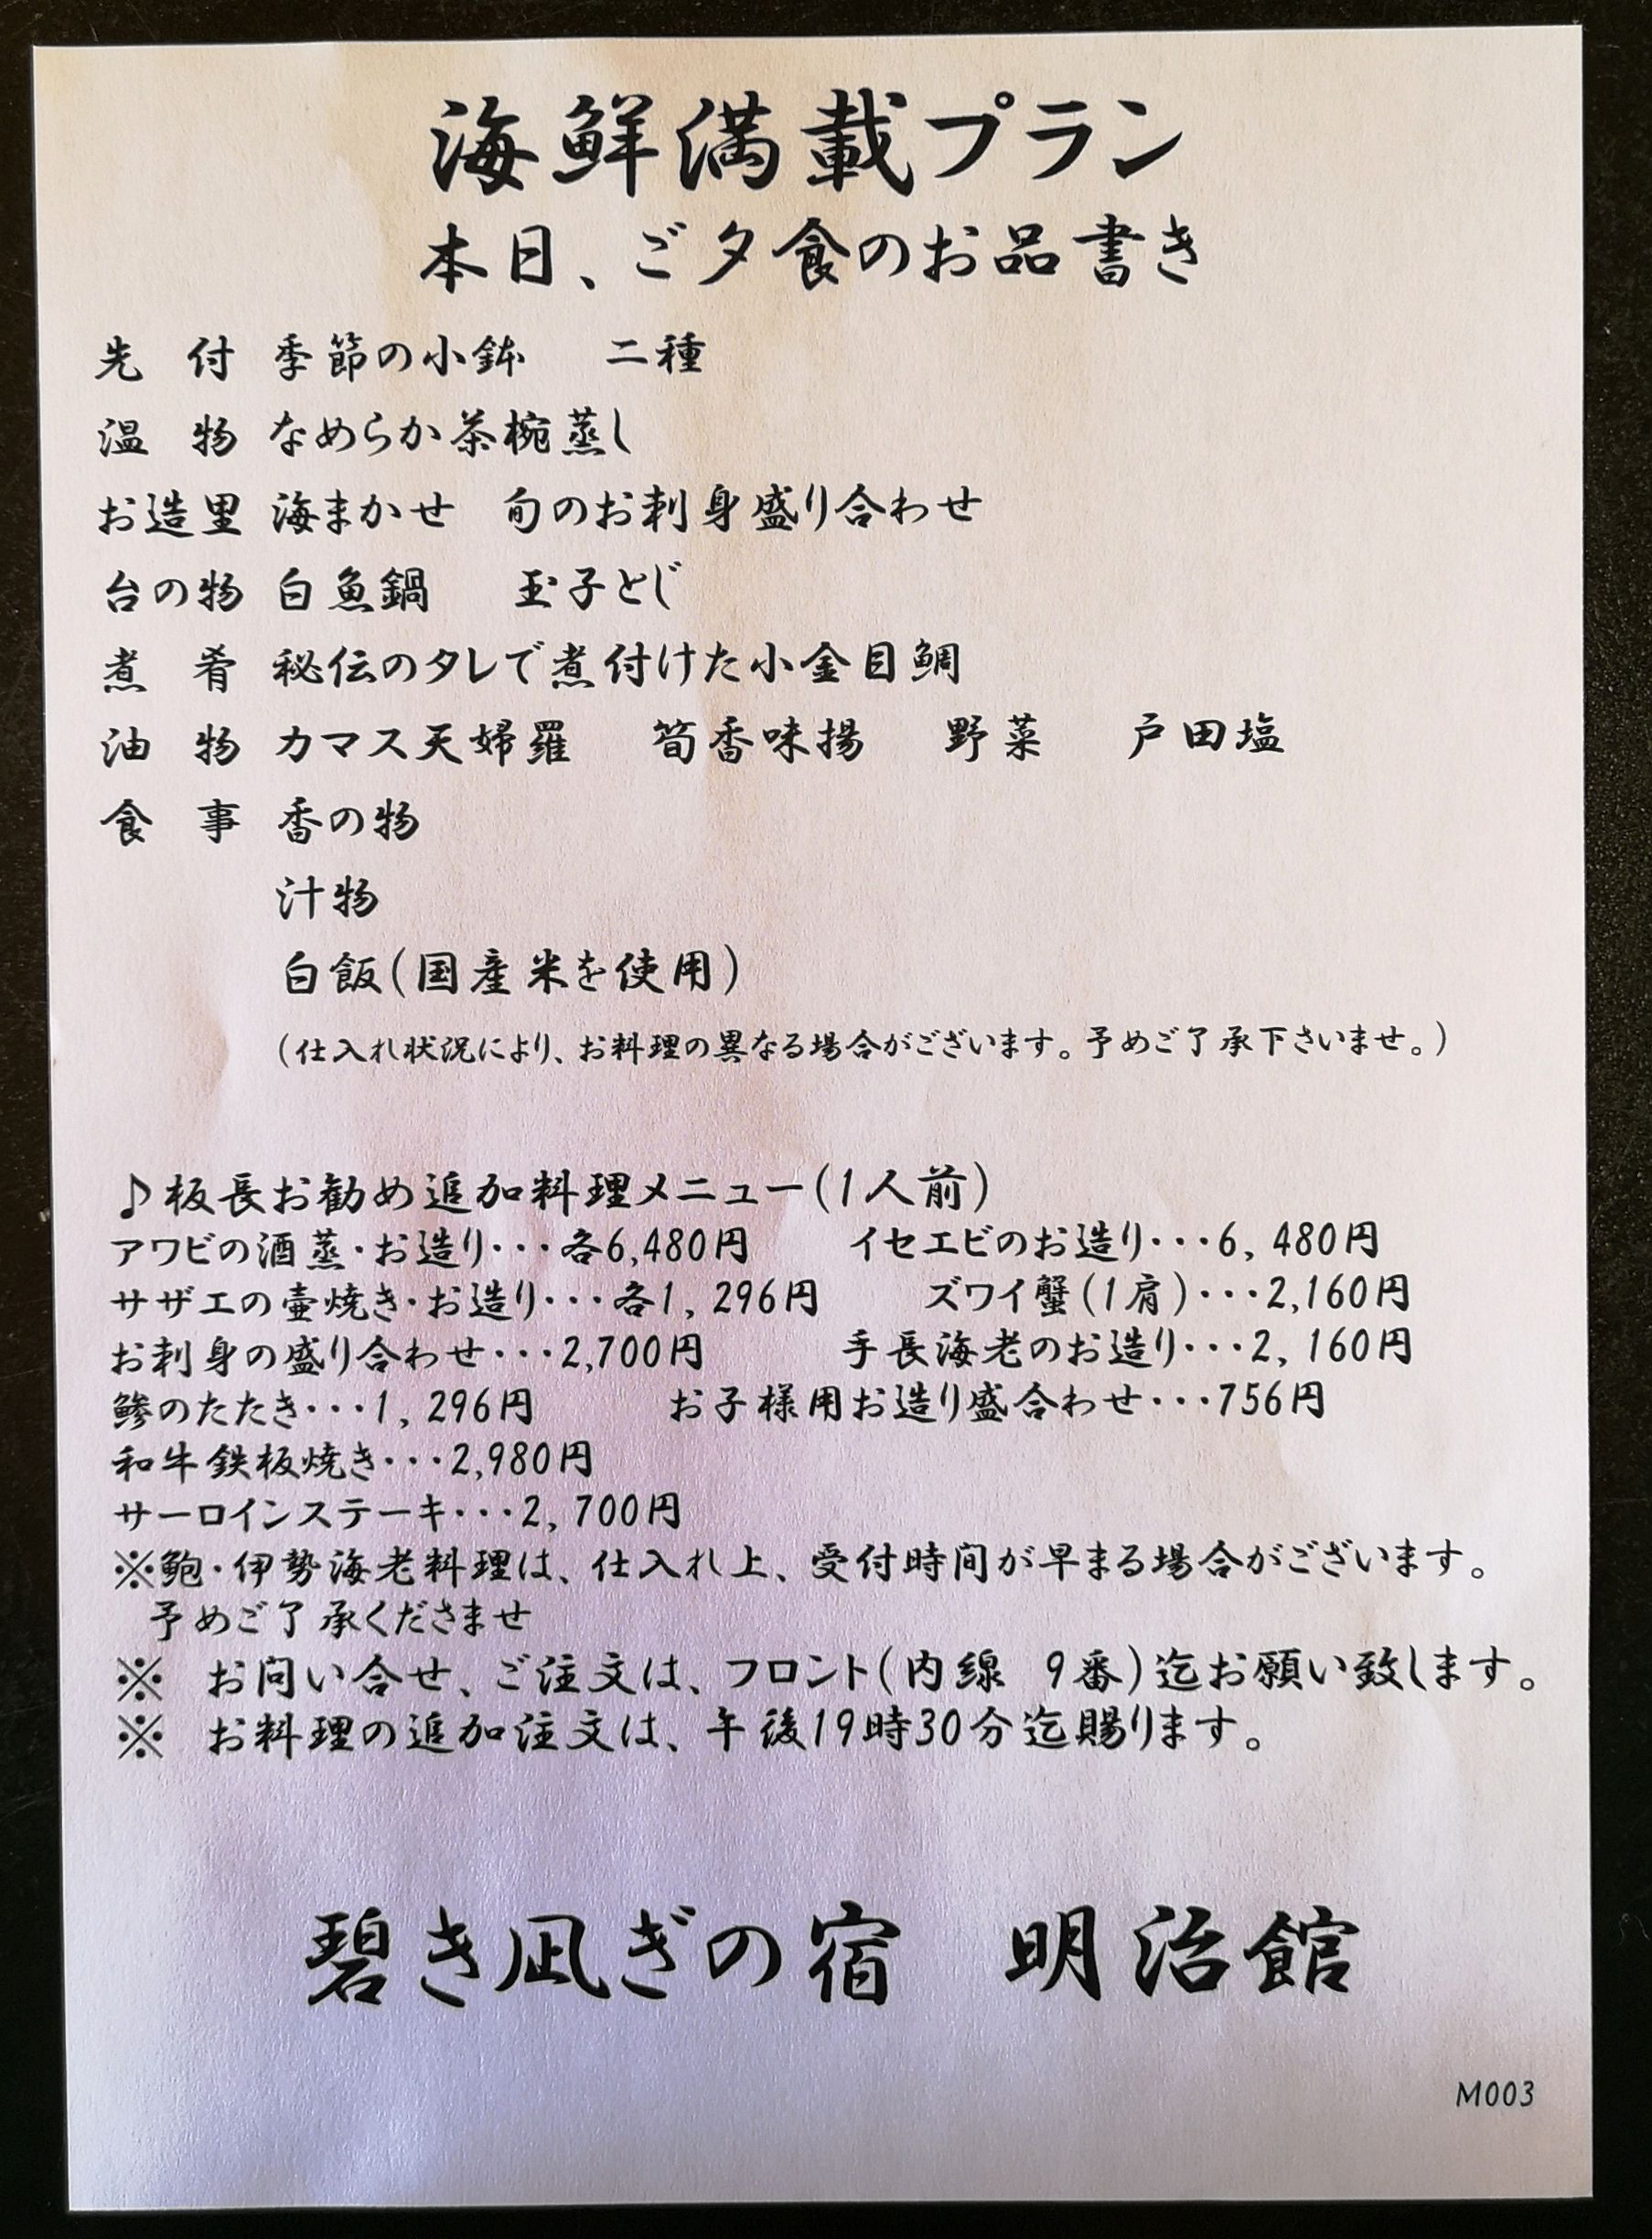 海鮮満載プラン
本日、ご夕食のお品書き
先　付 季節の小鉢　二種
温　物 なめらか茶椀蒸し
お造里 海まかせ　旬のお刺身盛り合わせ
台の物 白魚鍋　玉子とじ
煮　肴 秘伝のタレで煮付けた小金目鯛
油　物 カマス天婦羅　筍香味揚　野菜　戸田塩
食　事 香の物
汁物
白飯(国産米を使用)
(仕入れ状況により、お料理の異なる場合がございます。予めご了承下さいませ。)
♪板長お勧め追加料理メニュー(1人前)
アワビの酒蒸・お造り・・・各6,480円　イセエビのお造り・・・6, 480円
サザエの壷焼き・お造り・・・各1, 296円　ズワイ蟹(1肩)・・・2,160円
お刺身の盛り合わせ・・・2,700円　手長海老のお造り・・・2, 160円
鯵のたたき・・・1, 296円　お子様用お造り盛合わせ・・・756円
和牛鉄板焼き・・・2,980円
サーロインステーキ・・・2, 700円
※鮑・伊勢海老料理は、仕入れ上、受付時間が早まる場合がございます。
予めご了承くださませ
※　お問い合せ、ご注文は、フロント(内線　9番)迄お願い致します。
※　お料理の追加注文は、午後19時30分迄賜ります。
碧き凪ぎの宿　明治館
M003